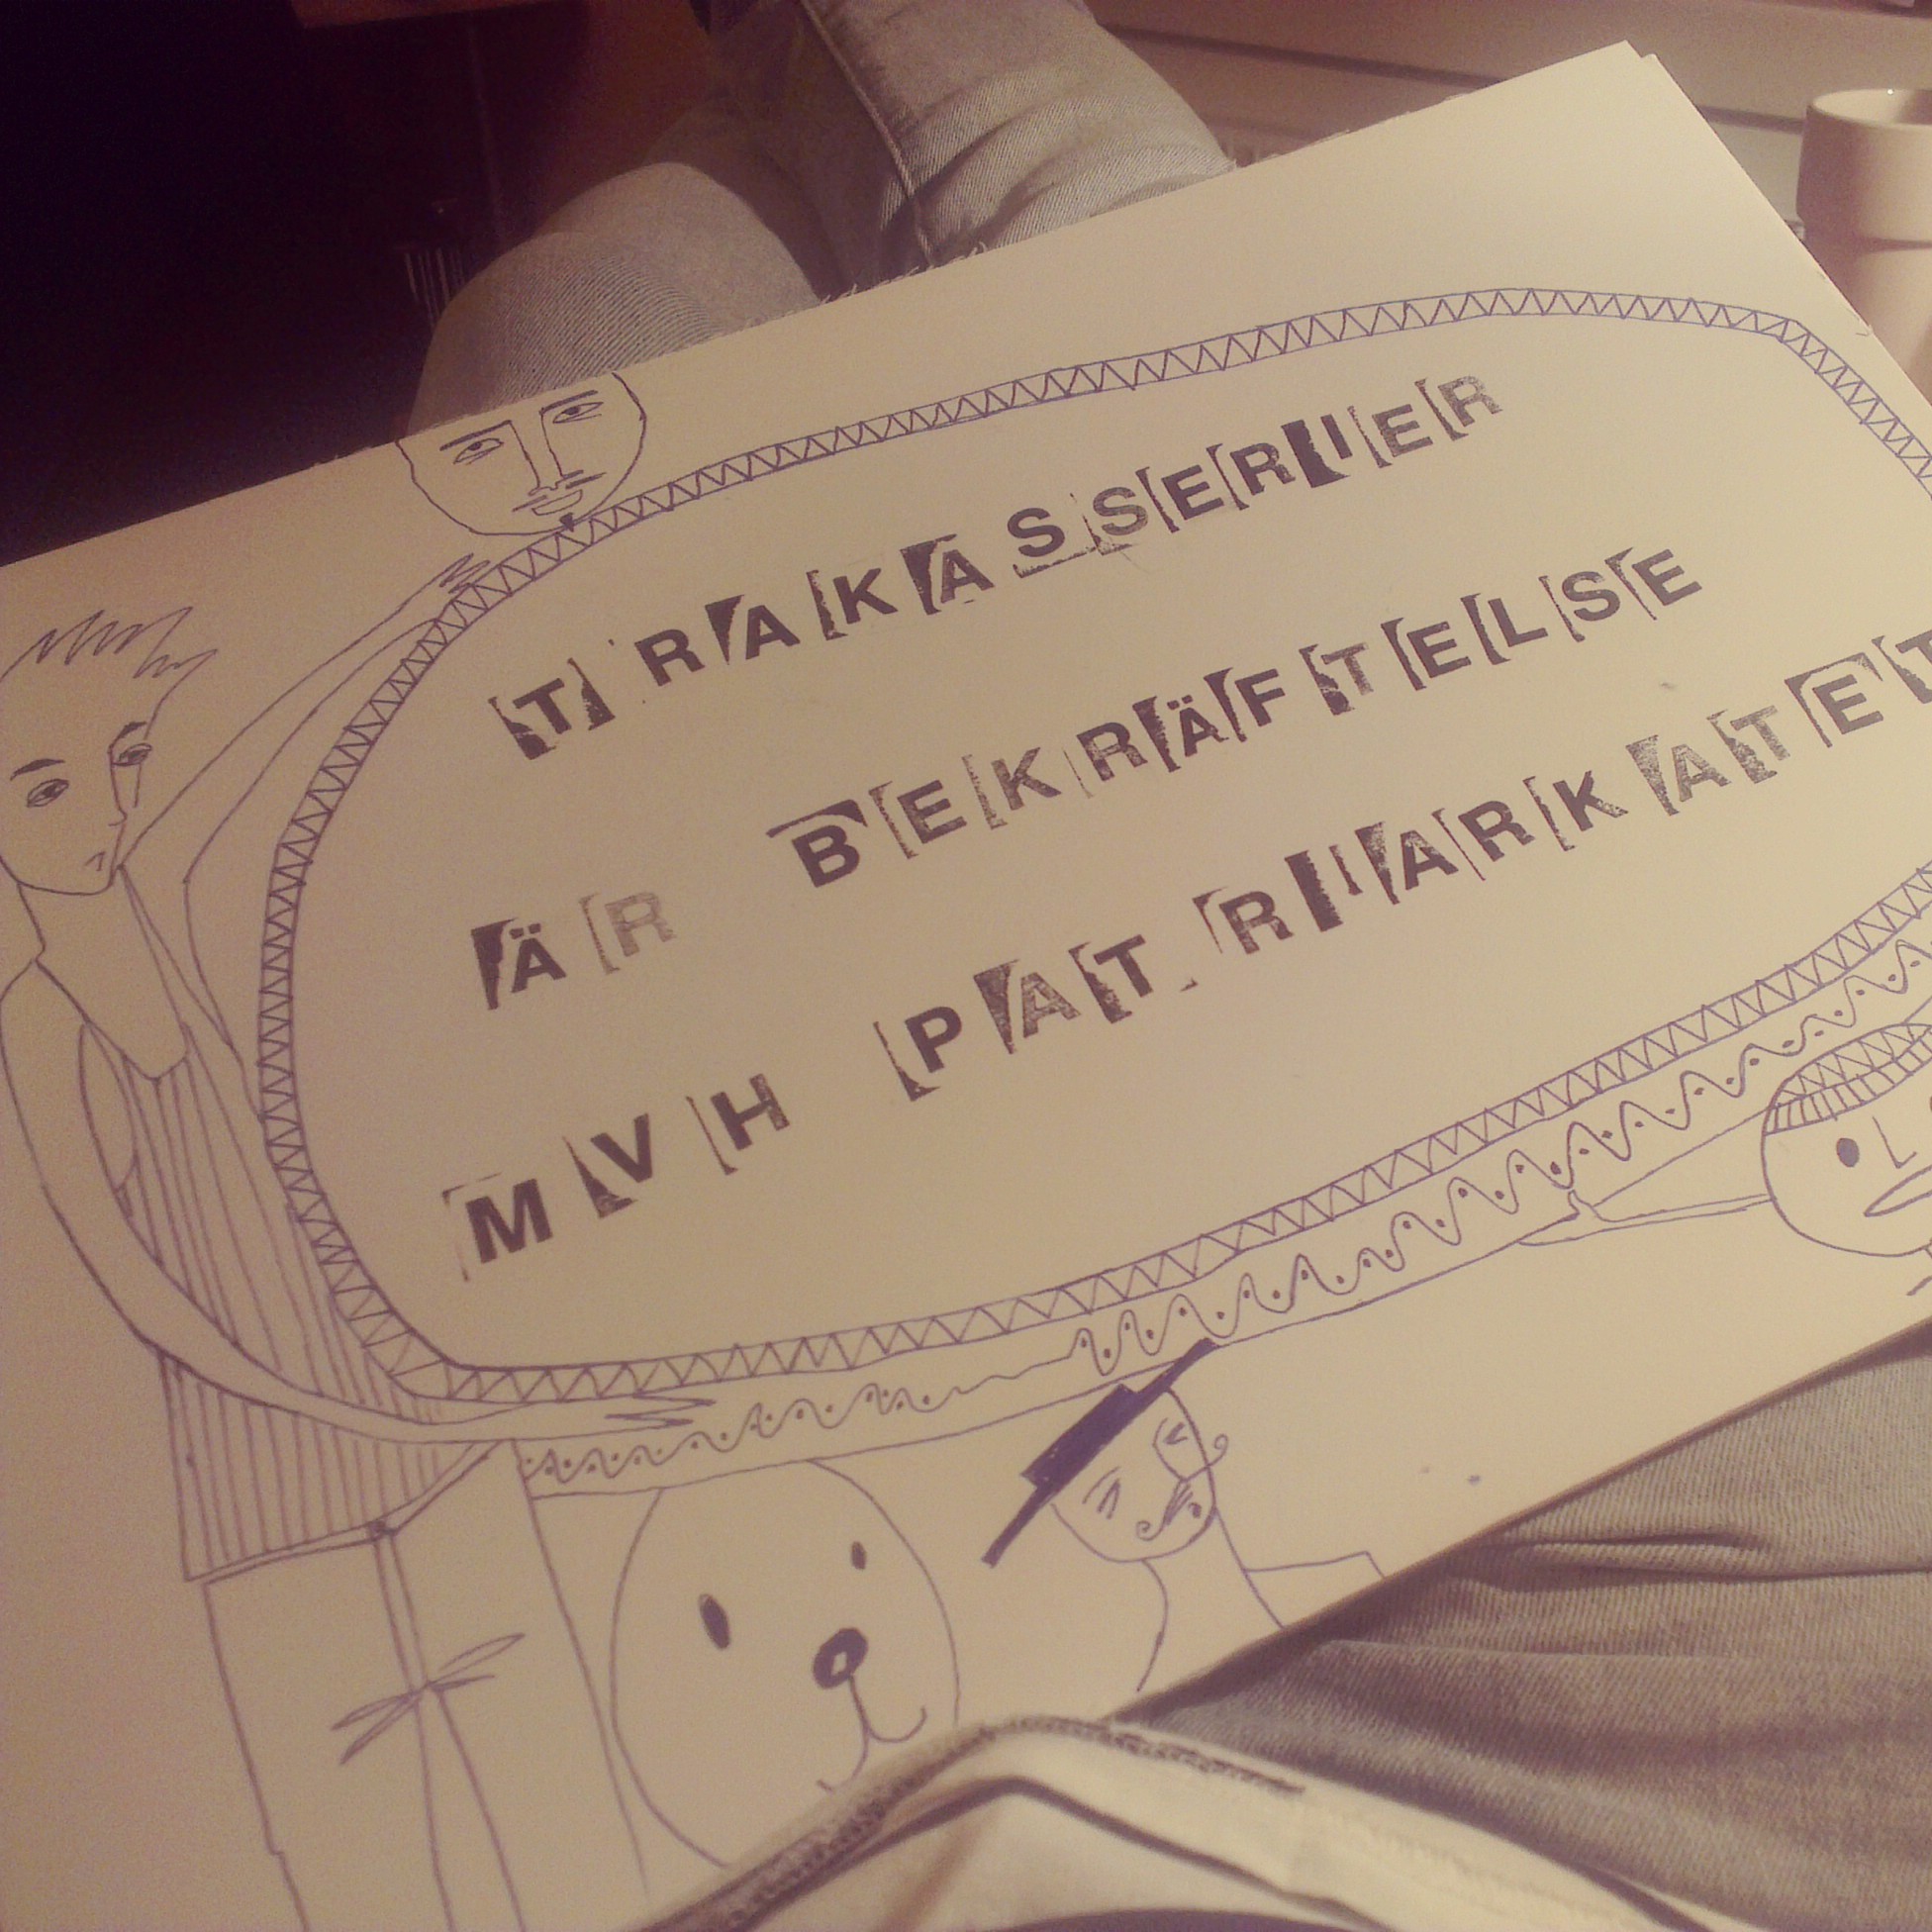 TRAKASSERIER
ÄR BEKRÄFTELSE
MVH PATRIARKATET